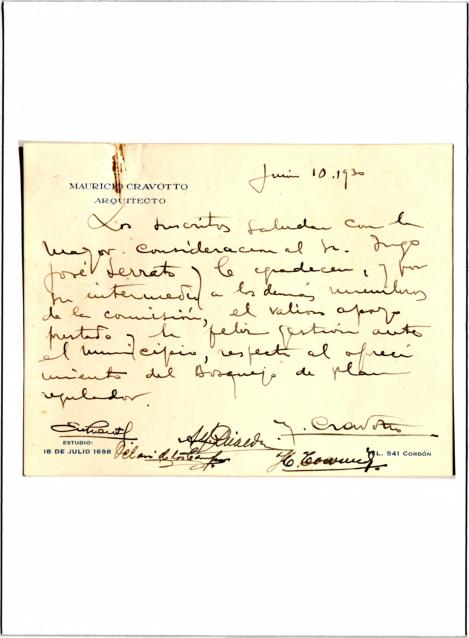 MAURICIO CRAVOTTO
ARQUITECTO
Junio 10.1930
Los suscritos saludan con la
mayor consideracion al Sr. Ingo
José Serrato y le agradecen, y por
su intermedio a los demás miembros
de la comisión, el valioso apoyo
prestado y la feliz gestión ante
el municipio, respecto al ofreci
miento del Bosquejo de plan
regulador.
M. Cravotto
ESTUDIO:
18 DE JULIO 1698
TEL. 541 CORDÓN